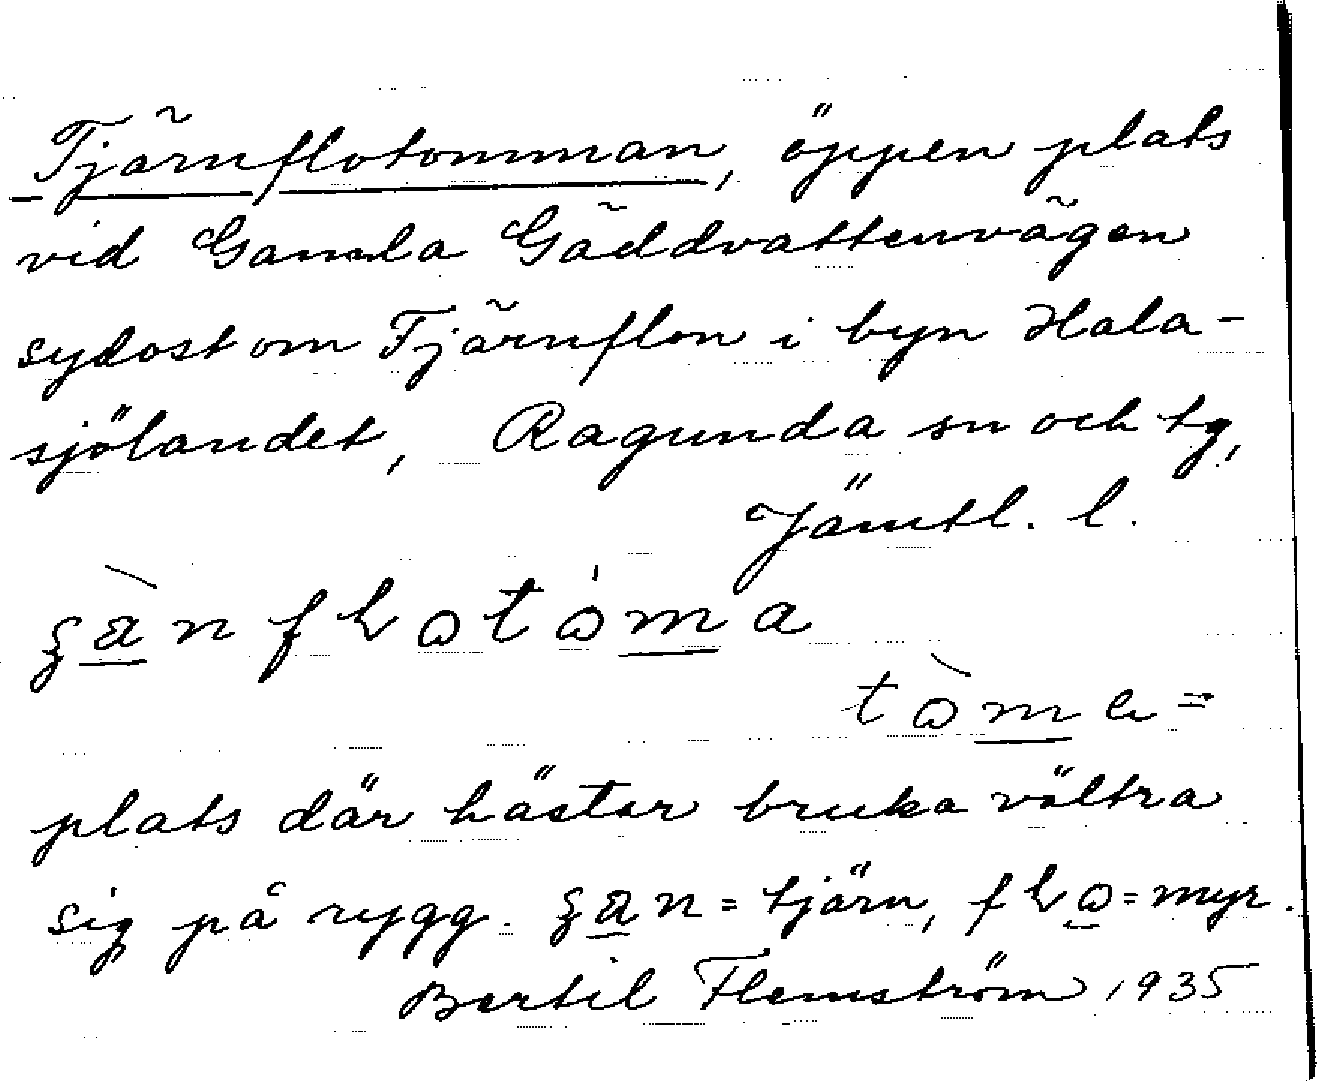 Tjärnflotomman, öppen plats
vid Gamla Gäddvattenvägen
sydost om Tjärnflon i byn Hala-
sjölandet, Ragunda sn och tg,
Jämtl. l.
plats där hästar bruka vältra
sig på rygg. = tjärn, = myr.
Bertil Flemström 1935